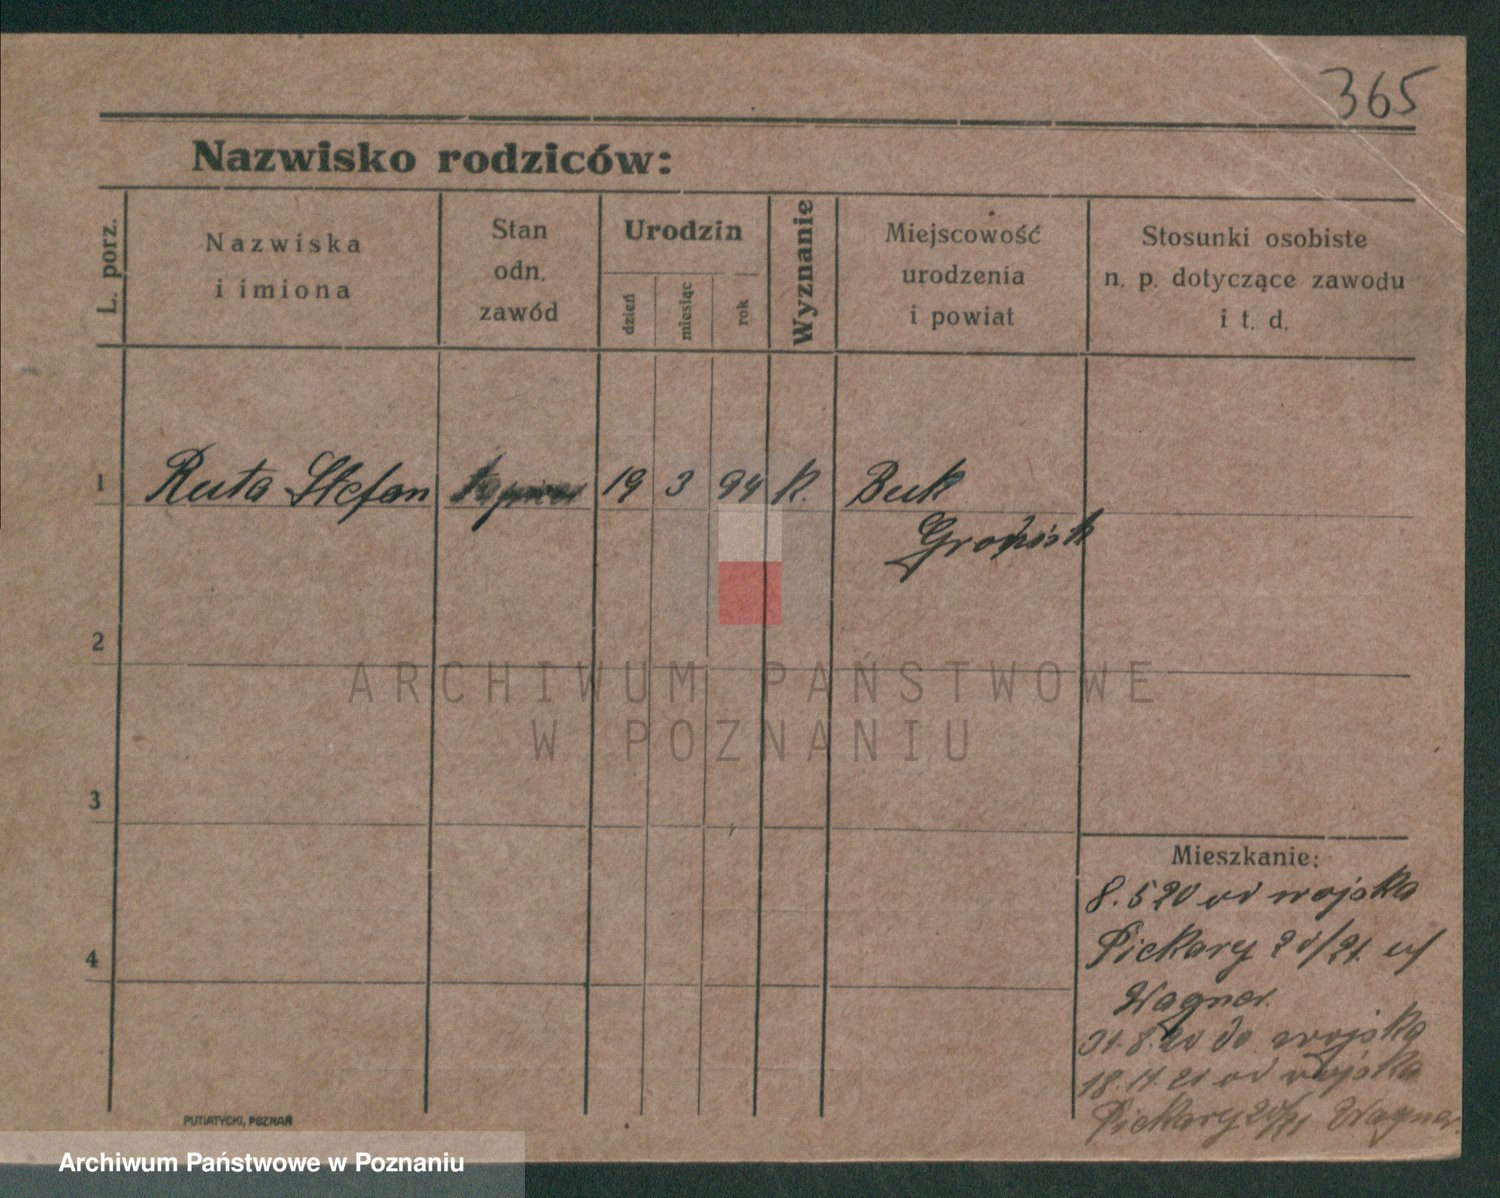 365
Nazwisko rodziców:
L. porz.
Nazwiska
i imiona
Stan
odn.
zawód
Urodzin
dzień
miesiąc
rok
Wyznanie
Miejscowość
urodzenia
i powiat
Stosunki osobiste
n. p. dotyczące zawodu
i t. d.
1 Ruta Stefan 19 3 94 k. Buk
Grodzisk
2
3
4
ARCHIWUM PAŃSTWOWE
W POZNANIU
Mieszkanie:
8.5 20 od wojska
Piekary 20/21
Wagner.
31.8.20 do wojska
18.11.20 od wojska
Piekary Wagner
PUTIATYCKI, POZNAŃ
Archiwum Państwowe w Poznaniu